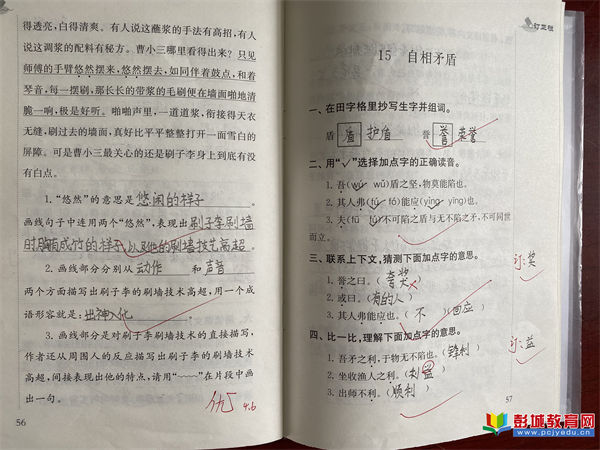 得透亮，白得清爽。有人说这蘸浆的手法有高招，有人
说这调浆的配料有秘方。曹小三哪里看得出来？只见
师傅的手臂悠然摆来，悠然摆去，如同伴着鼓点，和着
琴音，每一摆刷，那长长的带浆的毛刷便在墙面啪地清
脆一响，极是好听。啪啪声里，一道道浆，衔接得天衣
无缝，刷过去的墙面，真好比平平整整打开一面雪白的
屏障。可是曹小三最关心的还是刷子李身上到底有没
有白点。
1. “悠然”的意思是 悠闲的样子
画线句子中连用两个“悠然”，表现出 刷子李刷墙
时胸有成竹的样子，以及他的刷墙技艺高超。
2. 画线部分分别从 动作 和 声音
两个方面描写出刷子李的刷墙技术高超，用一个成
语形容就是：出神入化
3. 片段部分是对刷子李刷墙技术的直接描写，
作者还从周围人的反应描写出刷子李的刷墙技术
高超，间接表现出他的特点，请用“﹏﹏”在片段中画
出一句。
优 4.6
56
订正栏
15 自相矛盾
一、在田字格里抄写生字并组词。
盾 盾 护盾 誉 誉 荣誉
二、用“✓”选择加点字的正确读音。
1. 吾（wú wǔ）盾之坚，物莫能陷也。
2. 其人弗（fú fó）能应（yìng yīng）也。
3. 夫（fū fú）不可陷之盾与无不陷之矛，不可同世
而立。
三、联系上下文，猜测下面加点字的意思。
1. 誉之曰。（夸奖）
2. 或曰。（有的人）
3. 其人弗能应也。（不）（回应）
订：奖
四、比一比，理解下面加点字的意思。
1. 吾矛之利，于物无不陷也。（锋利）
2. 坐收渔人之利。（利益）
3. 出师不利。（顺利）
订：益
57
彭城教育网
www.pcjyedu.cn